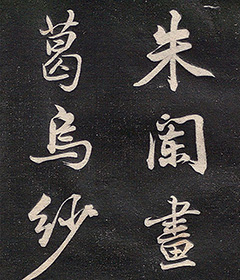 朱闌畫
葛烏紗